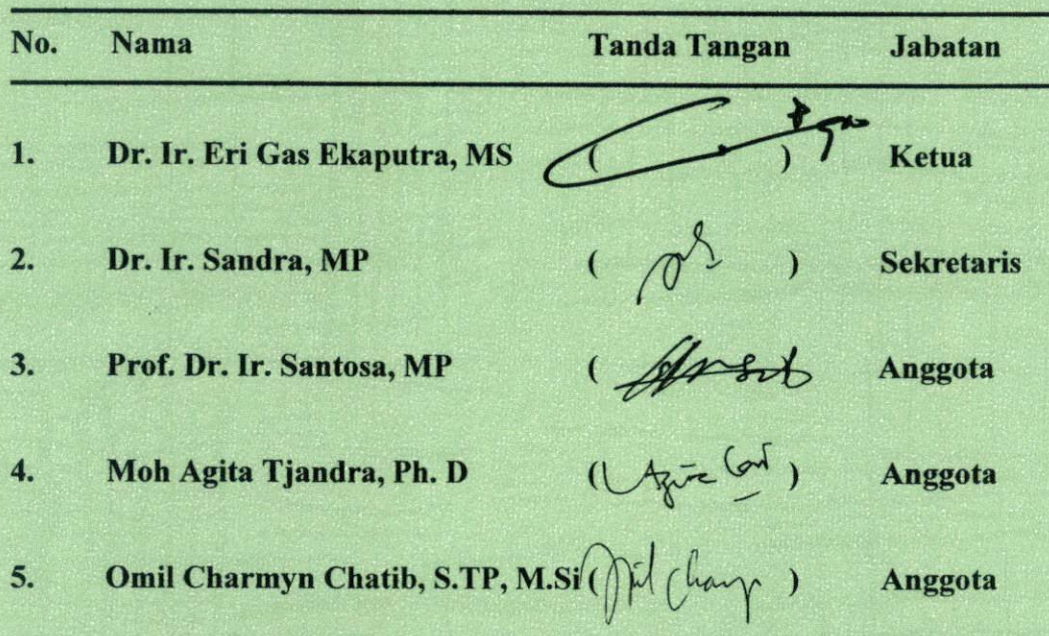 No. Nama Tanda Tangan Jabatan
1. Dr. Ir. Eri Gas Ekaputra, MS ( ) Ketua
2. Dr. Ir. Sandra, MP ( ) Sekretaris
3. Prof. Dr. Ir. Santosa, MP ( Anggota
4. Moh Agita Tjandra, Ph. D ( ) Anggota
5. Omil Charmyn Chatib, S.TP, M.Si ( ) Anggota